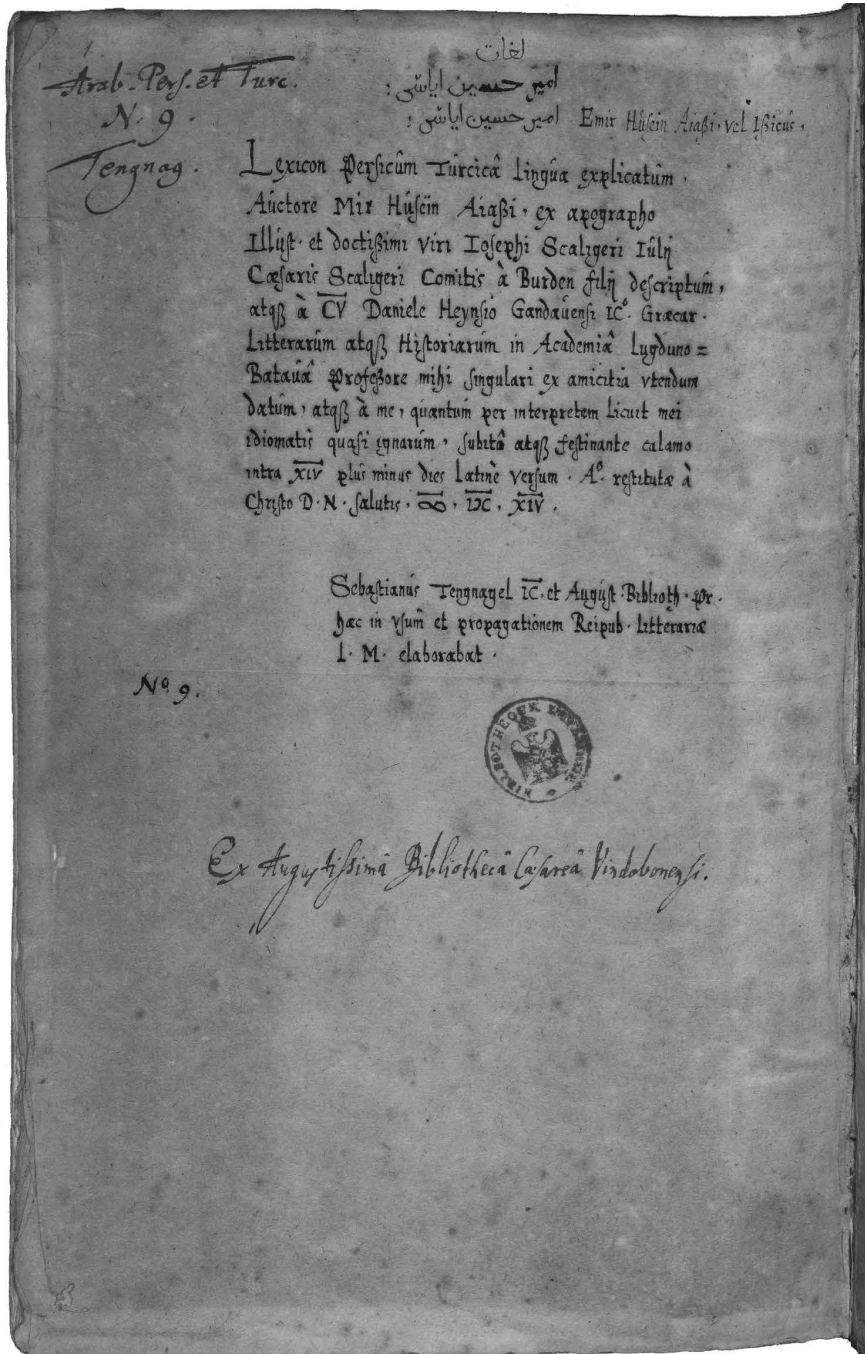 Arab. Pers. et Turc.
N. 9.
Tengnag.
لغات
امير حسين اياشى :
امير حسين اياشى : Emir Húsein Aiaßi, vel Ißicus,
Lexicon Persicûm Túrcicâ Lingúa explicatúm.
Aúctore Mir Húseïn Aiaßi, ex apographo
Illúst. et doctißimi viri Iosephi Scaligeri Iúlij
Cæsaris Scaligeri Comitis à Burden filij descriptum,
atqß à CV Daniele Heynsio Gandaúensi IC°. Græcar.
Litterarúm atqß Historiarúm in Academiâ Lugduno=
Bataúâ Profeßore mihi singulari ex amicitia vtendum
datúm, atqß à me, quantum per interpretem Licuit mei
idiomatis quasi ignarúm, subitâ atqß festinante calamo
intra XIV plús minus dies Latinè versum. A°. restitutæ à
Christo D. N. salutis, ꝏ, IƆC, XIV.
Sebastianús Tengnagel IC, et Aúgúst. Biblioth. Pr.
hæc in vsum et propagationem Reipub. Litterariæ
L. M. elaborabat.
N° 9.
Ex Augustissimâ Bibliothecâ Cæsareâ Vindobonensi.